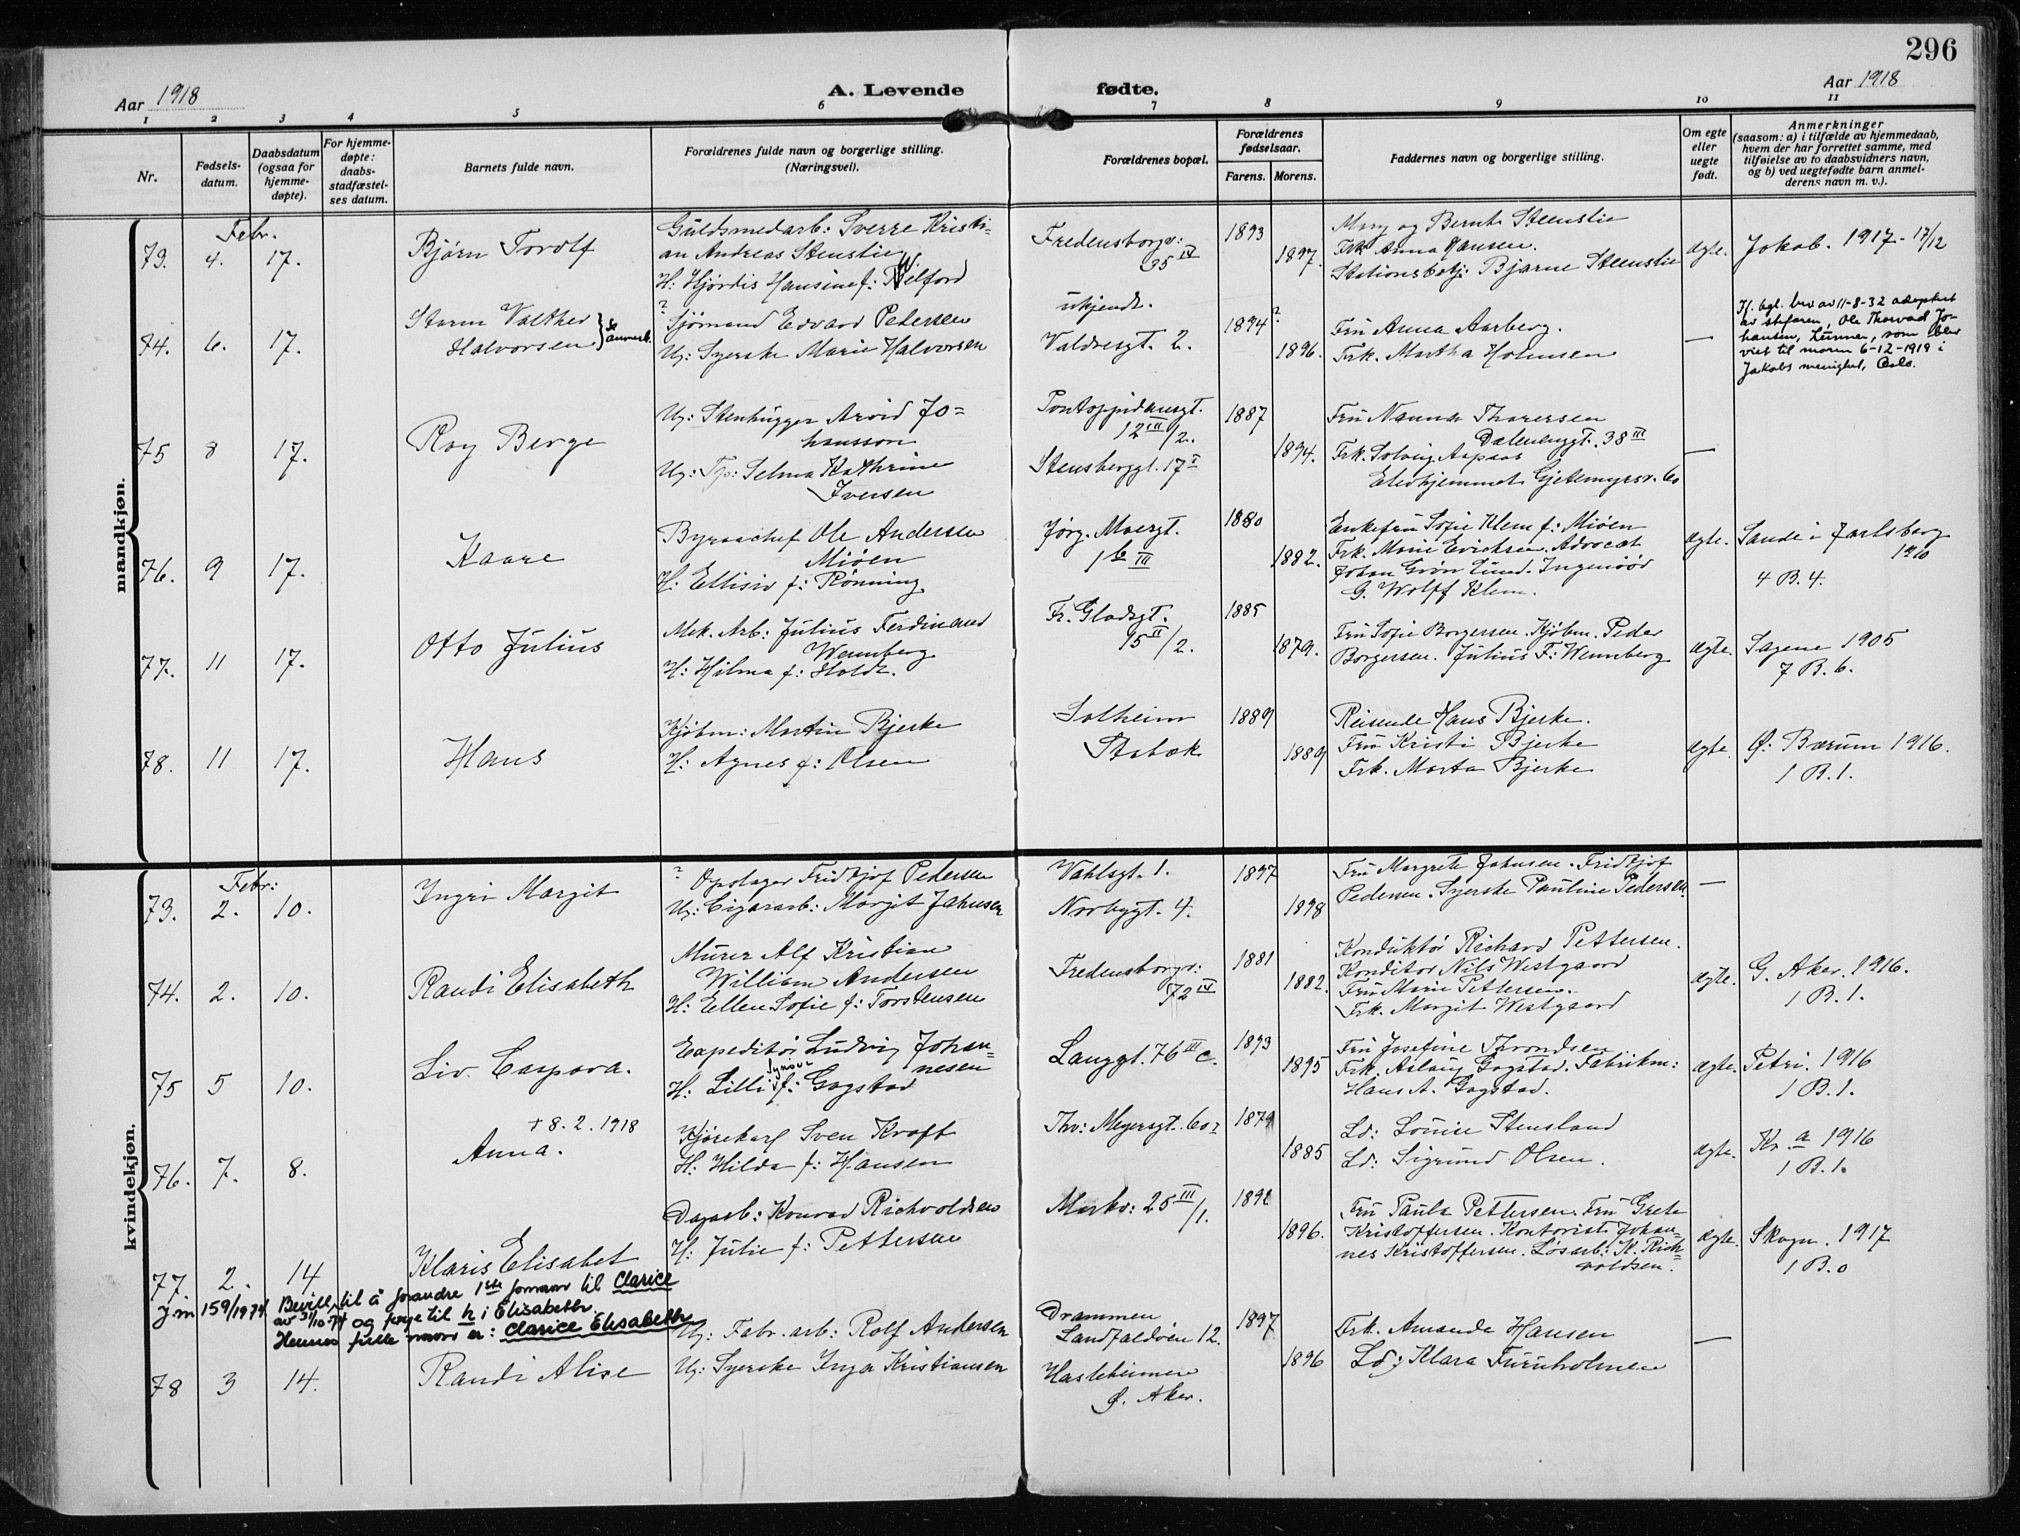 296
Aar 1918
A. Levende fødte.
Aar 1918
1 2 3 4 5 6 7 8 9 10 11
Nr.
Fødsels-
datum.
Daabsdatum
(ogsaa for
hjemme-
døpte).
For hjemme-
døpte:
daabs-
stadfæstel-
ses datum.
Barnets fulde navn.
Forældrenes fulde navn og borgerlige stilling.
(Næringsvei).
Forældrenes bopæl.
Forældrenes
fødselsaar.
Farens. Morens.
Faddernes navn og borgerlige stilling.
Om egte
eller
uegte
født.
Anmerkninger
(saasom: a) i tilfælde av hjemmedaab,
hvem der har forrettet samme, med
tilføielse av to daabsvidners navn,
og b) ved uegtefødte barn anmel-
derens navn m. v.).
mandkjøn.
Febr.
73. 4. 17.
Bjørn Torolf
Guldsmedarb: Sverre Kristi-
an Andreas Stenslie
H: Hjørdis Hansine f: Wilford
Fredensborgv:
35 IV
1893
1897.
Mary og Bernt Steenslie
Frk. Anna Hansen.
Stationsbetj: Bjarne Steenslie
ægte.
Jakob. 1917 - 17/12
74. 6. 17.
Storm Walther
Halvorsen } Se anmerk.
? Sjømand Edvard Pedersen
Ug: Syerske Marie Halvorsen
ukjendt.
Valdresgt. 2.
1894 ?
1896.
Fru Anna Aarberg.
Frk. Martha Holmsen
—
Kf. bgl. brev av 11-8-32 adoptert
av stefaren, Ole Thorvald Jo-
hansen, som blev
viet til moren 6-12-1919 i
Jakobs menighet, Oslo.
75 8 17.
Roy Berge
Ug: Stenhugger Arvid Jo=
hansson
Ug: Tp: Selma Kathrine
Iversen
Pontoppidansgt.
12 III/2.
Stensberggt. 17 I
1887
1894.
Fru Nanna Thoresen
Dælenenggt. 38 II
Frk. Solveig Aspaas
Elevhjemmet Gjetemyrsv. 60
—
76. 9 17.
Kaare
Byraachef Ole Andersen
Miøen
H: Ellisiv f: Rønning
Jørg. Moesgt.
1 b III
1880
1882.
Enkefru Sofie Klem f: Miøen
Frk. Marie Erichsen. Advocat
Johan Grøn Lund. Ingeniør
G. Wolff Klem.
ægte.
Sande i Jarlsberg
1910
4 B. 4.
77. 11 17.
Otto Julius
Mek. Arb: Julius Ferdinand
Wennberg
H: Hilma f: Holdt.
Fr. Gladsgt.
15 II/2.
1885
1879.
Fru Sofie Borgersen. Kjøbm. Peder
Borgersen. Julius F: Wennberg
ægte.
Sagene 1905
7 B. 6.
78. 11 17.
Hans
Kjøbm: Martin Bjerke
H: Agnes f: Olsen
Solheim
Stabæk
1889
1889
Reisende Hans Bjerke.
Fru Kristi Bjerke
Frk. Marta Bjerke
ægte
Ø: Bærum 1916.
1 B. 1.
kvindekjøn.
Febr:
73. 2. 10.
Ingri Margit
? Opslager Fridtjof Pedersen
Ug: Cigararb: Margit Jahnsen
Vahlsgt. 1.
Norbygt. 4.
1897
1898
Fru Margrete Jahnsen. Fridtjof
Pedersen. Syerske Pauline Pedersen.
—
74. 2. 10.
Randi Elisabeth
Murer Alf Kristian
William Andersen
H: Ellen Sofie f: Torstensen
Fredensborgv:
72 IV
1881
1882.
Konduktør Richard Pettersen.
Konditor Nils Westgaard
Fru Marie Pettersen.
Frk. Margit Westgaard
ægte.
G. Aker. 1916.
1 B. 1.
75 5 10.
Liv Caspara.
Expeditør Ludvig Johan=
nesen
H: Lilli Synøve f: Gogstad
Langgt. 76 III c.
1893
1895
Fru Josefine Throndsen
Frk. Aslaug Gogstad. Fabrikm:
Hans A. Gogstad.
ægte.
Petri. 1916
1 B. 1.
76. 7. 8.
+ 8. 2. 1918
Anna.
Kjørekarl Sven Kraft
H: Hilda f: Hansen
Thv: Meyersgt. 60
1879
1885
Ld: Louise Stensland
Ld: Sigrund Olsen.
ægte.
Kr a 1916
1 B. 1.
77. 2. 14
Klaris Elisabet
Dagarb: Konrad Richvoldsen
H: Julie f: Pettersen
Markv: 25 III/1.
1892
1896.
Fru Paula Pettersen. Fru Grete
Kristoffersen. Kontorist Johan-
nes Kristoffersen. Løsarb: K. Rich=
voldsen.
ægte.
Skogn. 1917
1 B. 0
J.nr 159/1974 Bevill. til å forandre 1ste fornavn til Clarice
av 31/10-74 og føye til h i Elisabeth.
Hennes fulle navn er: Clarice Elisabeth
78 3 14.
Randi Alise
Ug: Fabr. arb: Rolf Andersen
Ug: Syerske Inga Kristiansen
Drammen
Landfaldøen 12.
Hasleheimen
Ø. Aker.
1897
1896
Frk. Amanda Hansen
Ld: Klara Furuholmen
—